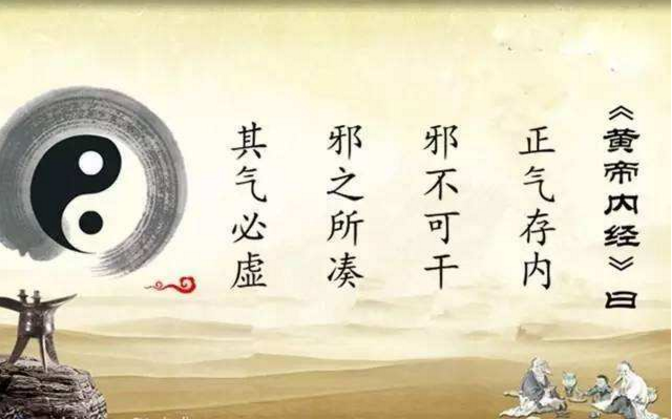 《黄帝内经》曰
正气存内
邪不可干
邪之所凑
其气必虚